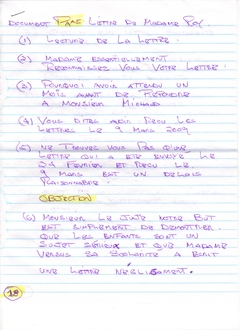 DOCUMENT FAKE LETTRE DE MADAME ROY
(1) LECTURE DE LA LETTRE.
(2) MADAME ESSENTIELLEMENT
RECONNAISSEZ VOUS VOTRE LETTRE?
(3) POURQUOI AVOIR ATTENDU UN
MOIS AVANT DE RÉPONDRE
A MONSIEUR MICHAUD
(4) VOUS DITES AVOIR RECU LES
LETTRES LE 9 MARS 2009
(5) NE TROUVEZ VOUS PAS QU'UNE
LETTRE QUI A ÉTÉ ENVOYÉ LE
24 FEVRIER ET RECU LE
9 MARS EST UN DELAIS
RAISONNABLE.
OBJECTION
(6) MONSIEUR LE JUGE NOTRE BUT
EST SIMPLEMENT DE DEMONTRER
QUE LES ENFANTS SONT UN
SUJET SÉRIEUX ET QUE MADAME
VERSUS SA A ÉCRIT
UNE LETTRE NÉGLIGAMENT.
18